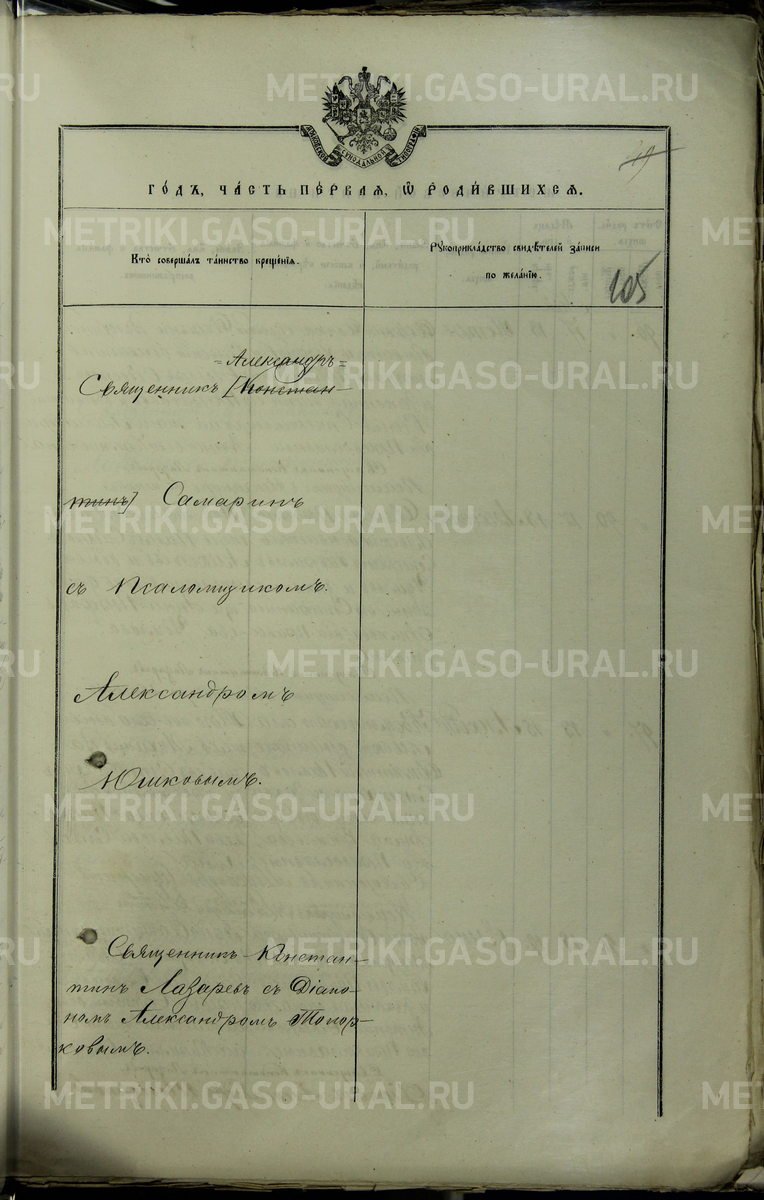 METRIKI.GASO-URAL.RU
49
го́дъ, ча́сть пе́рвая, ѡ҆ роди́вшихся.
Кто̀ соверша́лъ та́инство креще́нїя.
Рꙋкоприкла́дство свидѣ́телей за́писи
по жела́нїю.
105
=Александръ=
Священникъ [Констан-
тинъ] Самаринъ
съ Псаломщикомъ.
Александромъ
Юшковымъ.
Священникъ Констан-
тинъ Лазаревъ съ Діако-
номъ Александромъ Топор-
ковымъ.